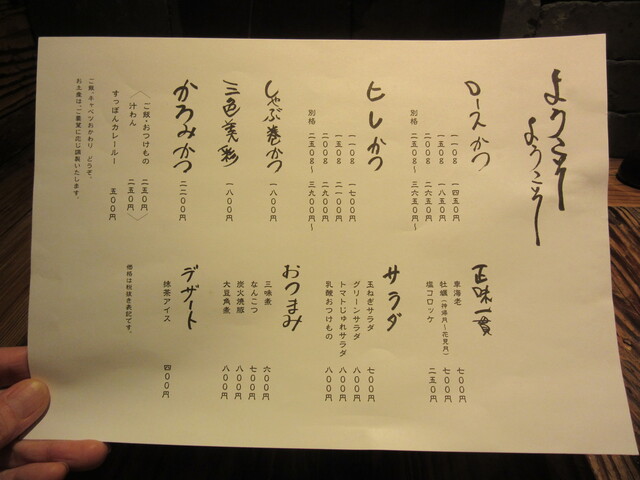 ようこそ
ようこそ
ロースかつ
一一〇g 一四五〇円
一五〇g 一八五〇円
二〇〇g 二六五〇円
別格 二五〇g～ 三六五〇円～
ヒレかつ
一一〇g 一七〇〇円
一五〇g 二一〇〇円
二〇〇g 二九〇〇円
別格 二五〇g～ 三九〇〇円～
しゃぶ巻かつ 一八〇〇円
三色美彩 一八〇〇円
かろみかつ 二二〇〇円
ご飯・おつけもの 二五〇円
汁わん 二五〇円
すっぽんカレールー 五〇〇円
ご飯、キャベツおかわり どうぞ。
お土産は、ご要望に応じ調製いたします。
正味一貫
車海老 七〇〇円
牡蠣(神降月～花見月) 七〇〇円
塩コロッケ 二五〇円
サラダ
玉ねぎサラダ 七〇〇円
グリーンサラダ 八〇〇円
トマトじゅれサラダ 八〇〇円
乳酸おつけもの 八〇〇円
おつまみ
三味煮 六〇〇円
なんこつ 七〇〇円
炭火焼豚 八〇〇円
大豆角煮 八〇〇円
デザート
抹茶アイス 四〇〇円
価格は税抜き表記です。